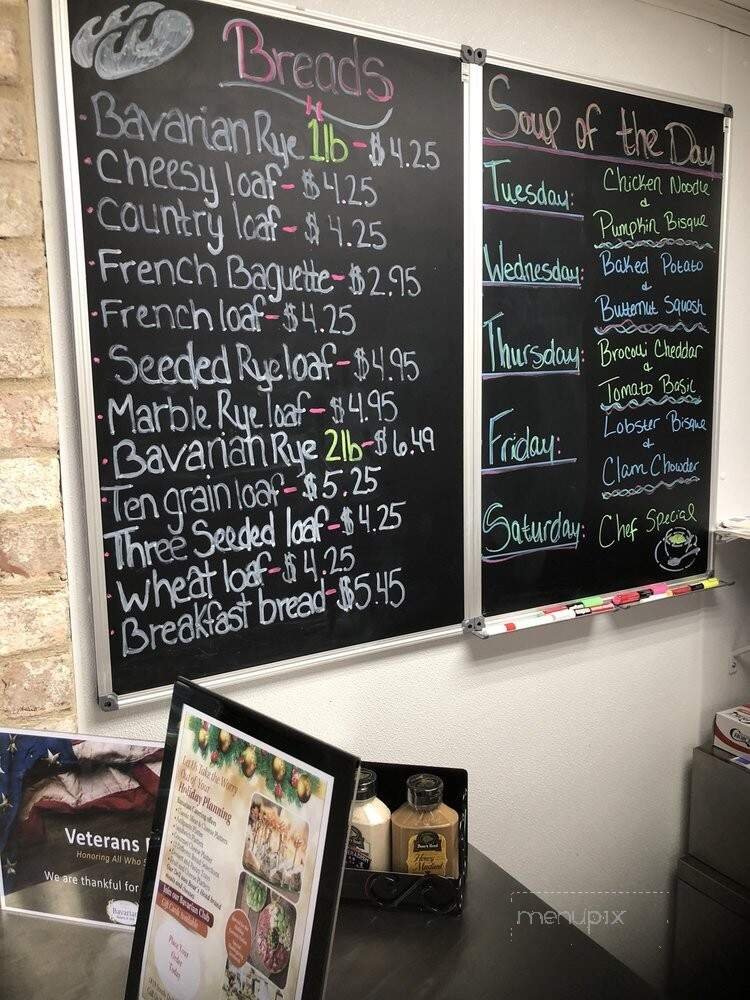 Breads
Bavarian Rye 1lb - $4.25
Cheesy loaf - $4.25
Country loaf - $4.25
French Baguette - $2.95
French loaf - $4.25
Seeded Rye loaf - $4.95
Marble Rye loaf - $4.95
Bavarian Rye 2lb - $6.49
Ten grain loaf - $5.25
Three Seeded loaf - $4.25
Wheat loaf - $4.25
Breakfast bread - $5.45
Soup of the Day
Tuesday: Chicken Noodle
&
Pumpkin Bisque
Wednesday: Baked Potato
&
Butternut Squash
Thursday: Brocoli Cheddar
&
Tomato Basil
Friday: Lobster Bisque
&
Clam Chowder
Saturday: Chef Special
Veterans
Honoring All Who
We are thankful for
Let Us Take the Worry
Out of Your
Holiday Planning
Join our Bavarian Club
Gift Cards Available
Place Your
Order
Today
Honey
Mustard
menupix